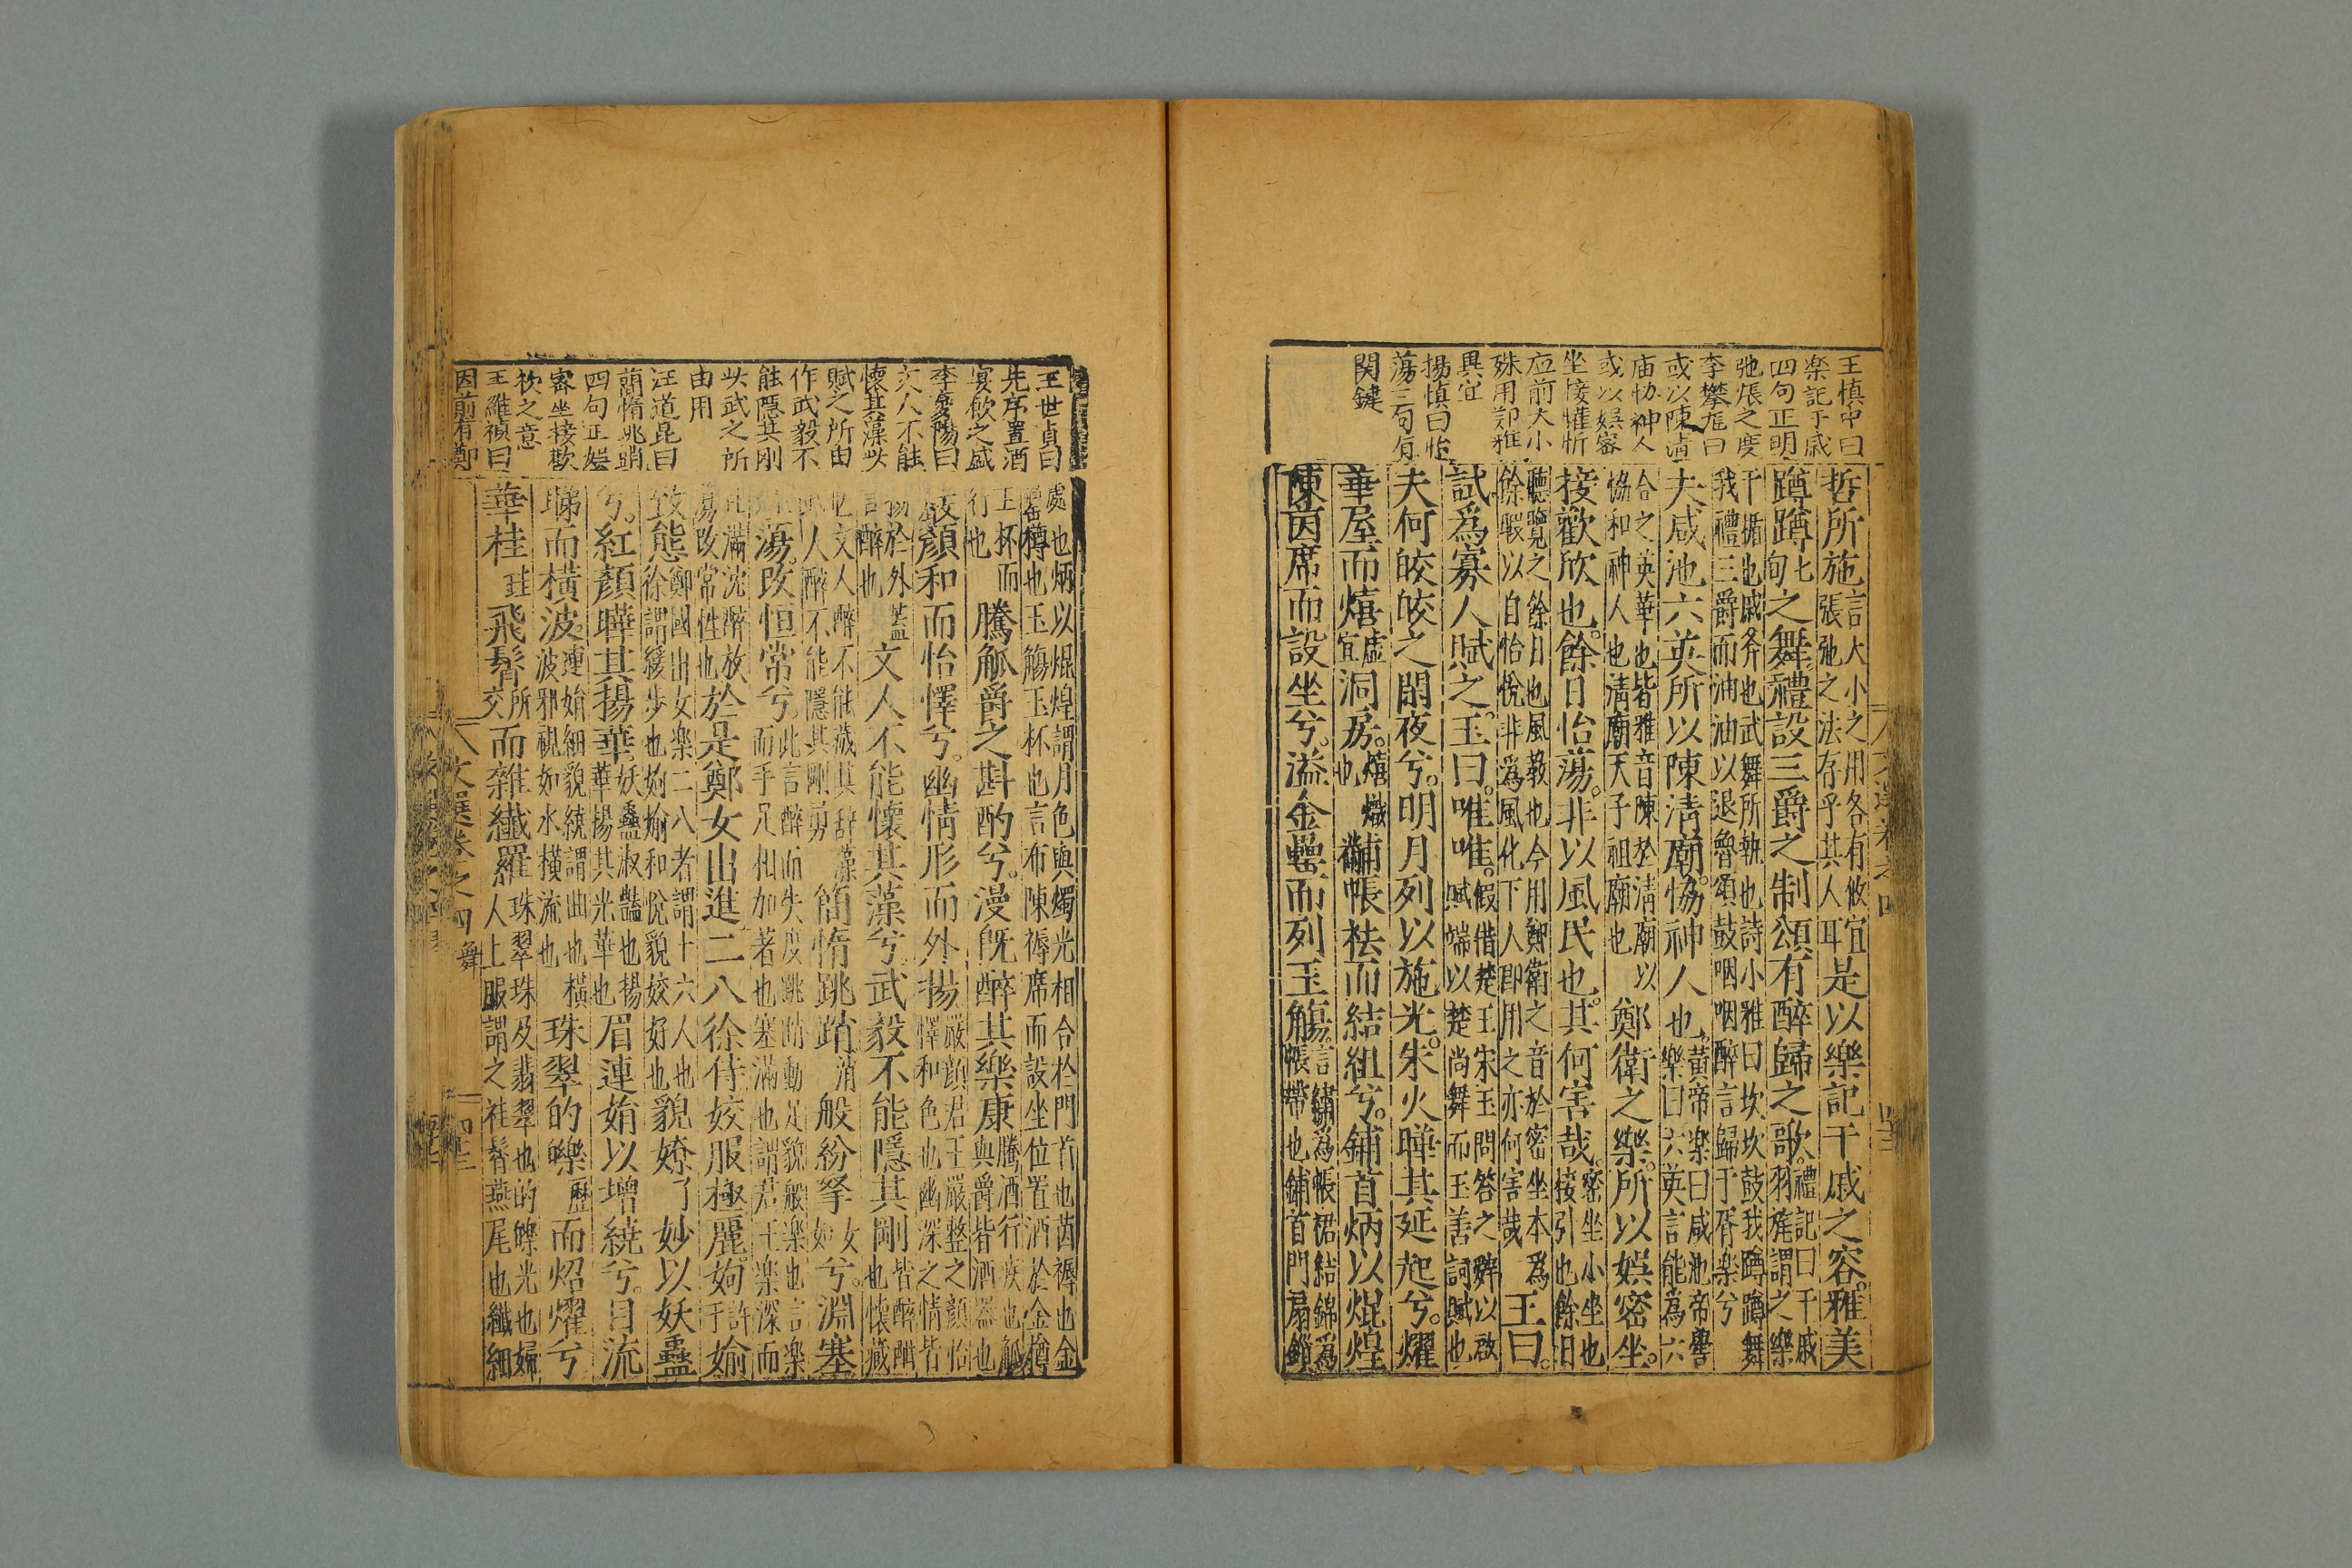 王慎中曰
楽記于戚
四句正明
弛張之度
李攀龍曰
或以陳清
庙協神人
或以娯密
坐接懽忻
应前大小
殊用郑雅
異宜
楊慎曰怡
蕩三句有
関鍵
哲所施言大小之用各有攸宜
張弛之法存乎其人耳是以樂記干戚之容雅美
蹲蹲七句之舞禮設三爵之制頌有醉歸之歌禮記曰干戚
羽旄謂之樂
干楯也戚斧也武舞所執也詩小雅曰坎坎鼓我蹲蹲舞
我禮三爵而油油以退魯頌鼓咽咽醉言歸于胥楽兮
夫咸池六英所以陳清廟協神人也黄帝楽曰咸池帝嚳
樂曰六英言能為六
合之英華也皆雅音陳於清廟以
協和神人也清廟天子祖廟也鄭衛之樂所以娯密坐
接歡欣也餘日怡蕩非以風民也其何害哉密坐小坐也
接引也餘日
聽覽之餘日也風教也今用鄭衛之音於密坐本為
餘暇以自怡悅非為風化下人即用之亦何害哉王曰
試爲寡人賦之玉曰唯唯假借楚王宋玉問答之辭以啟
賦端以楚尚舞而玉善詞賦也
夫何皎皎之閒夜兮明月列以施光朱火曄其延起兮燿
華屋而熺虛宜洞房熺熾也黼帳袪而結組兮鋪首炳以焜煌
陳茵席而設坐兮溢金罍而列玉觴言繡為帳裙結錦爲
帳帶也鋪首門扇鐶
王世貞曰
先序置酒
宴飲之盛
李夢陽曰
文人不能
懷其藻兮
賦之所由
作武毅不
能隱其刚
兮武之所
由用
汪道昆曰
簡惰跳踃
四句正娯
密坐接歡
欣之意
王維禎曰
因前有鄭
處也炳以焜煌謂月色與燭光相合於門首也茵褥也金
罍樽也玉觴玉杯也言布陳褥席而設坐位置酒於金樽
玉杯而
行也騰觚爵之斟酌兮漫旣醉其樂康騰酒行疾也觚
與爵皆酒器也
嚴顔和而怡懌兮幽情形而外揚嚴顔君王嚴整之顔怡
懌和色也幽深之情皆
揚於外蓋
言醉也文人不能懷其藻兮武毅不能隱其剛皆醉酣
也懷藏
也文人醉不能藏其辭藻
武人醉不能隱其剛勇簡惰跳踃消般紛挐女如兮淵塞
沈蕩改恒常兮此言醉而失度跳踃動足貌般楽也言楽
而手足相加著也塞滿也謂君王楽深而
且滿沈醉放
蕩改常性也於是鄭女出進二八徐侍姣服極麗姁許于媮
致態鄭國出女楽二八者謂十六人也
徐謂緩步也姁媮和悅貌姣好也貌嫽了妙以妖蠱
兮紅顔曄其揚華妖蠱淑豔也揚
華揚其光華也眉連娟以增繞兮目流
睇而橫波連娟細貌繞謂曲也橫
波邪視如水橫流也珠翠的皪歷而炤燿兮
華袿珪飛髾所交而雜纖羅珠翠珠及翡翠也的皪光也婦
人上服謂之袿髾燕尾也纖細
文選卷之四
舞